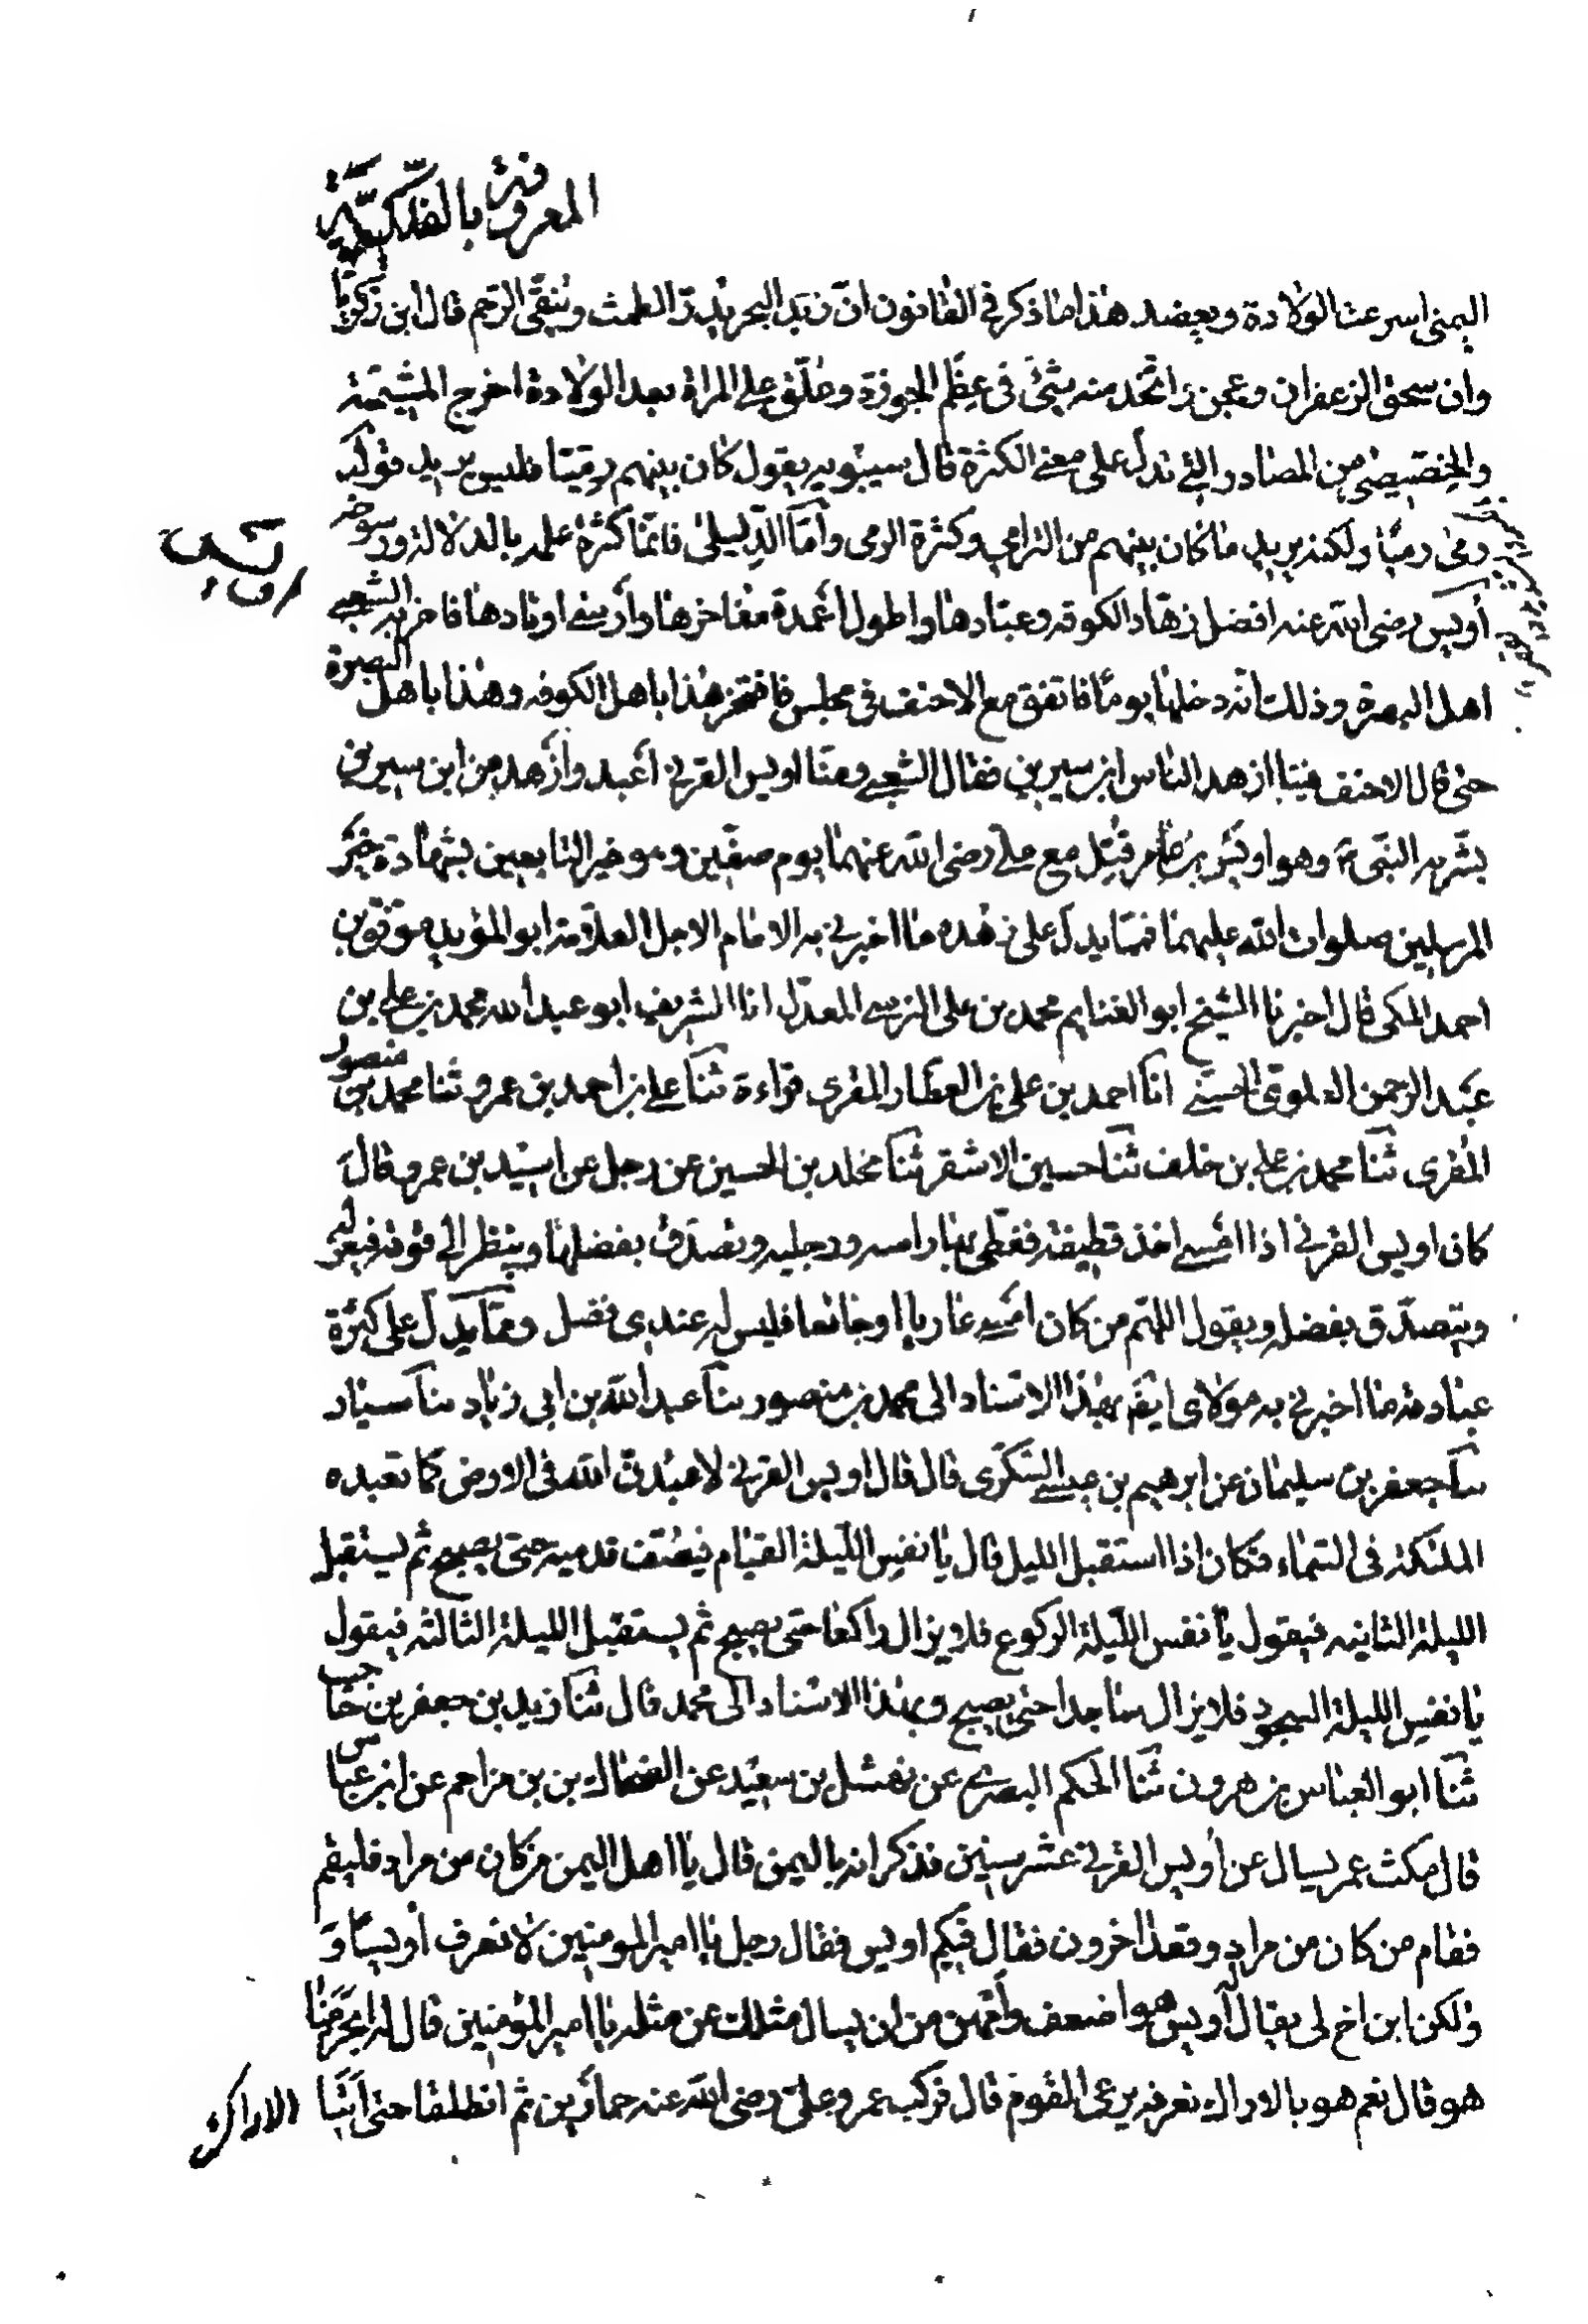 المعروفة بالفلكية
اليمنى اسرعت الولادة ويعضد هذا ما ذكر في القانون ان زبد البحر يدر الطمث وينقى الرحم قال ابن زكريا
وان سحق الزعفران وعجن واتخذ منه شئ في عظم الجوزة وعلق على المراة بعد الولادة اخرج المشيمة
والخصيصى من المصادر التي تدل على معنى الكثرة قال سيبويه يقول كان بينهم رميا فليس يريد قولك
رمى رميا ولكنه يريد ما كان بينهم من الترامي وكثرة الرمى وأما الدليلى فانما كثرة علمه بالدلالة ورسوخه
أويس رضى الله عنه افضل زهاد الكوفة وعبادها واطول اعمدة مفاخرها وأرسى اوتادها فاخر به الشعبي
اهل البصرة وذلك انه دخلها يوما فاتفق مع الاحنف في مجلس فافتخر هذا باهل الكوفه وهذا باهل البصرة
حتى قال الاحنف فينا ازهد الناس ابن سيرين فقال الشعبي ومنا اويس القرني أعبد وأزهد من ابن سيرين
بشر به النبي وهو اويس بن عامر قتل مع علي رضى الله عنهما يوم صفين وهو خير التابعين بشهادة خير
المرسلين صلوات الله عليهما فمما يدل على زهده ما اخبرني به الامام الاجل العلامة ابو المؤيد موفق بن
احمد المكى قال اخبرنا الشيخ ابو الغنايم محمد بن على النرسي المعدل انا الشريف ابو عبد الله محمد بن على بن
عبد الرحمن العلوى الحسني انا احمد بن على بن العطار المقرى قراءة ثنا على بن احمد بن عمرو ثنا محمد بن منصور
المقرى ثنا محمد بن على بن خلف ثنا حسين الاشقر ثنا مخلد بن الحسين عن رجل عن اسيد بن عمرو قال
كان اويس القرني اذا امسى اخذ قطيفة فغطى بها راسه ورجليه وتصدق بفضلها وينظر الى قوته فيعزله
ويتصدق بفضله ويقول اللهم من كان امسى عاريا او جائعا فليس له عندى فضل ومما يدل على كثرة
عبادته ما اخبرني به مولاى ايضا بهذا الاسناد الى محمد بن منصور ثنا عبد الله بن ابى زياد ثنا سيار
ثنا جعفر بن سليمان عن ابرهيم بن عيسى السكرى قال قال اويس القرني لاعبدن الله في الارض كما تعبده
الملئكة في السماء فكان اذا استقبل الليل قال يا نفس الليلة القيام فيصف قدميه حتى يصبح ثم يستقبل
الليلة الثانيه فيقول يا نفس الليلة الركوع فلا يزال راكعا حتى يصبح ثم يستقبل الليلة الثالثه فيقول
يا نفس الليلة السجود فلا يزال ساجدا حتى يصبح وبهذا الاسناد الى محمد قال ثنا زيد بن جعفر بن حاجب
ثنا ابو العباس بن هرون ثنا الحكم البصرى عن نهشل بن سعيد عن الضحاك بن بن مزاحم عن ابن عباس
قال مكث عمر يسال عن أويس القرني عشر سنين فذكر انه باليمن قال يا اهل اليمن من كان من مراد فليقم
فقام من كان من مراد وقعد اخرون فقال فيكم اويس فقال رجل يا امير المومنين لا نعرف أويسا و
ولكن ابن اخ لى يقال له أويس هو اضعف وأمهن من ان يسال مثلك عن مثله يا امير المؤمنين قال له ابحرمنا
هو قال نعم هو بالاراك بعرفه يرعى القوم قال فركب عمر وعلى رضى الله عنه حمارين ثم انطلقا حتى اتيا الاراك
اويس